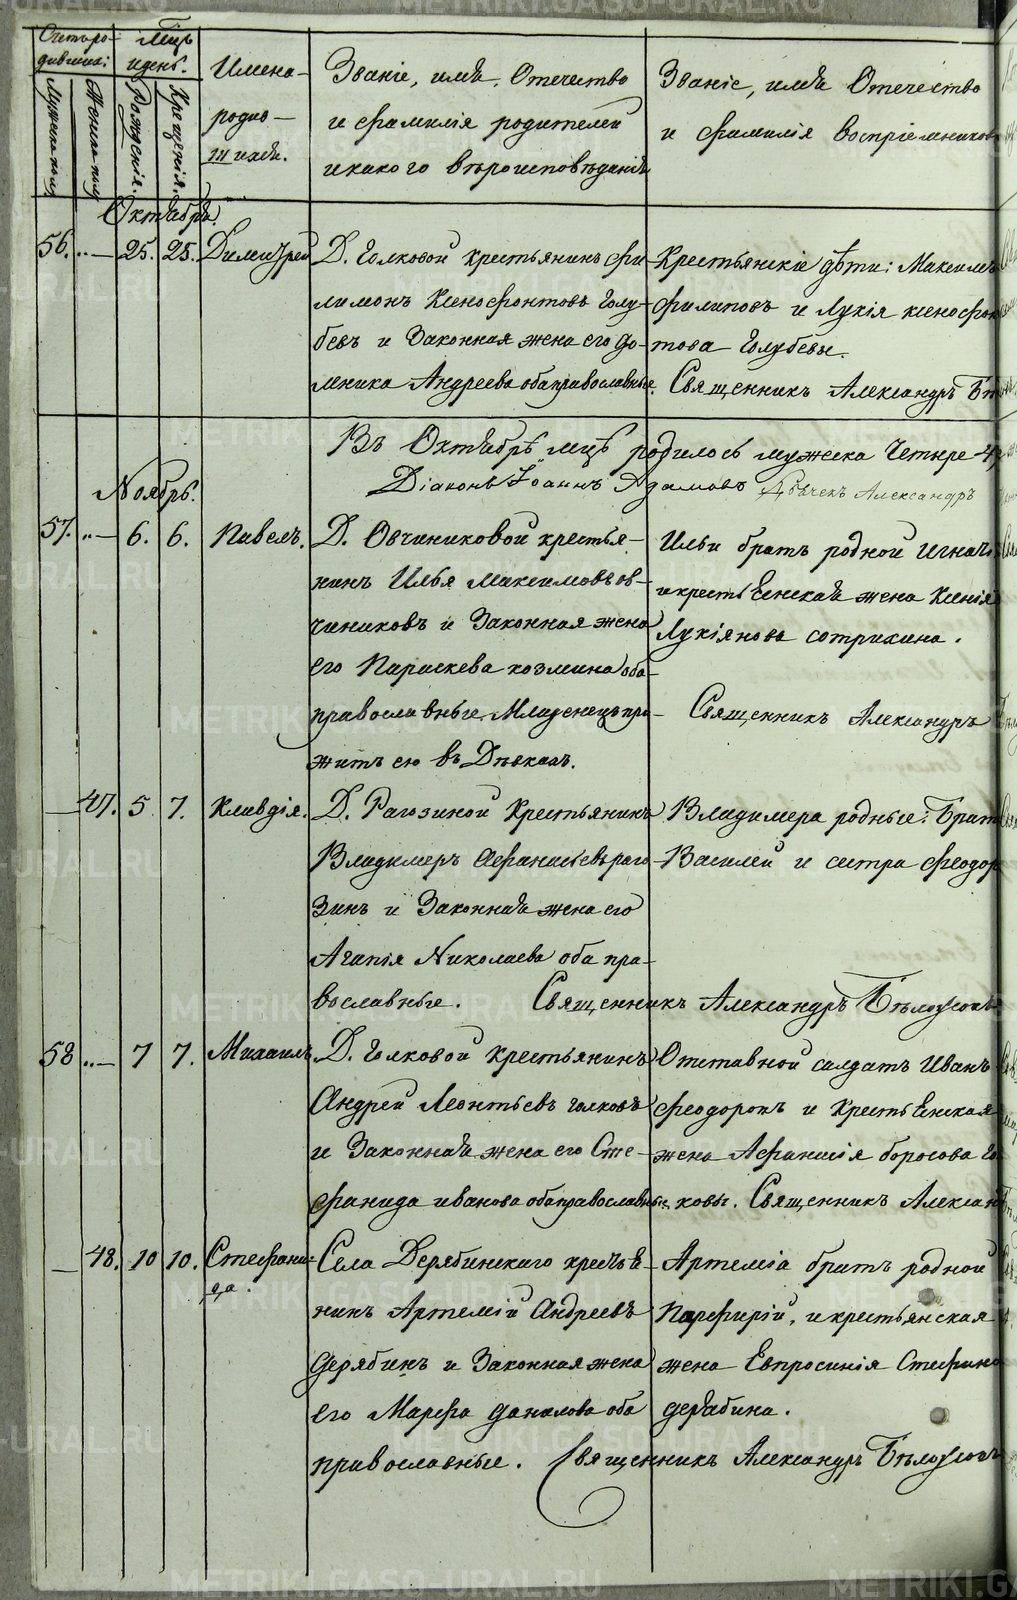 Счетъ ро-
дившихся:
Мѣсяцъ
и день.
Мужеска полу
Женска полу
Рожденія.
Крещенія.
Имена
родив-
шихся.
Званіе, имя, Отечество
и фамилія родителей
и какого вѣроисповѣданія
Званіе, имя Отечество
и фамилія воспріемниковъ
Октябрь.
56. 25. 25. Димитрій
Д. Голковой крестьянинъ Фи-
лимонъ Ксенофонтовъ Голу-
бевъ и Законная жена его До-
мника Андреева оба православные.
Крестьянскіе дѣти: Максимъ
Филиповъ и Лукія Ксенофон
това Голубевы.
Священникъ Александръ
Въ Октябрѣ мцѣ родилось мужеска Четыре
Діаконъ Іоаннъ Адамовъ Дьячекъ Александръ
Ноябрь.
57. 6. 6. Павелъ.
Д. Овчиниковой крестья-
нинъ Илья Максимовъ Ов-
чиниковъ и Законная жена
его Параскева Козмина оба
православные. Младенецъ при-
житъ ею въ Дѣвкахъ.
Ильи братъ родной Игнатъ
и крестьянская жена Ксенія
Лукіянова Сотрихина.
Священникъ Александръ
47. 5 7. Клавдія.
Д. Рагозиной Крестьянинъ
Владимеръ Афанасьевъ Раго-
зинъ и Законная жена его
Агапія Николаева оба пра-
вославные.
Владимера родные: Братъ
Василей и сестра Феодор
Священникъ Александръ Бѣлоусовъ
58 7 7. Михаилъ.
Д. Голковой крестьянинъ
Андрей Леонтьевъ Голковъ
и Законная жена его Сте-
фанида Иванова оба православные.
Отставной солдатъ Иванъ
Феодоровъ и Крестьянская
жена Афанасія Борисова Го
ковы. Священникъ Алексан
48. 10 10. Стефани-
да.
Села Дерябинскаго крестья-
нинъ Артемій Андреевъ
Дерябинъ и Законная жена
его Марфа Данилова оба
православные.
Артемія братъ родной
Парфирій, и крестьянская
жена Евпросинія Стефано
Дерябина.
Священникъ Александръ Бѣлоусовъ